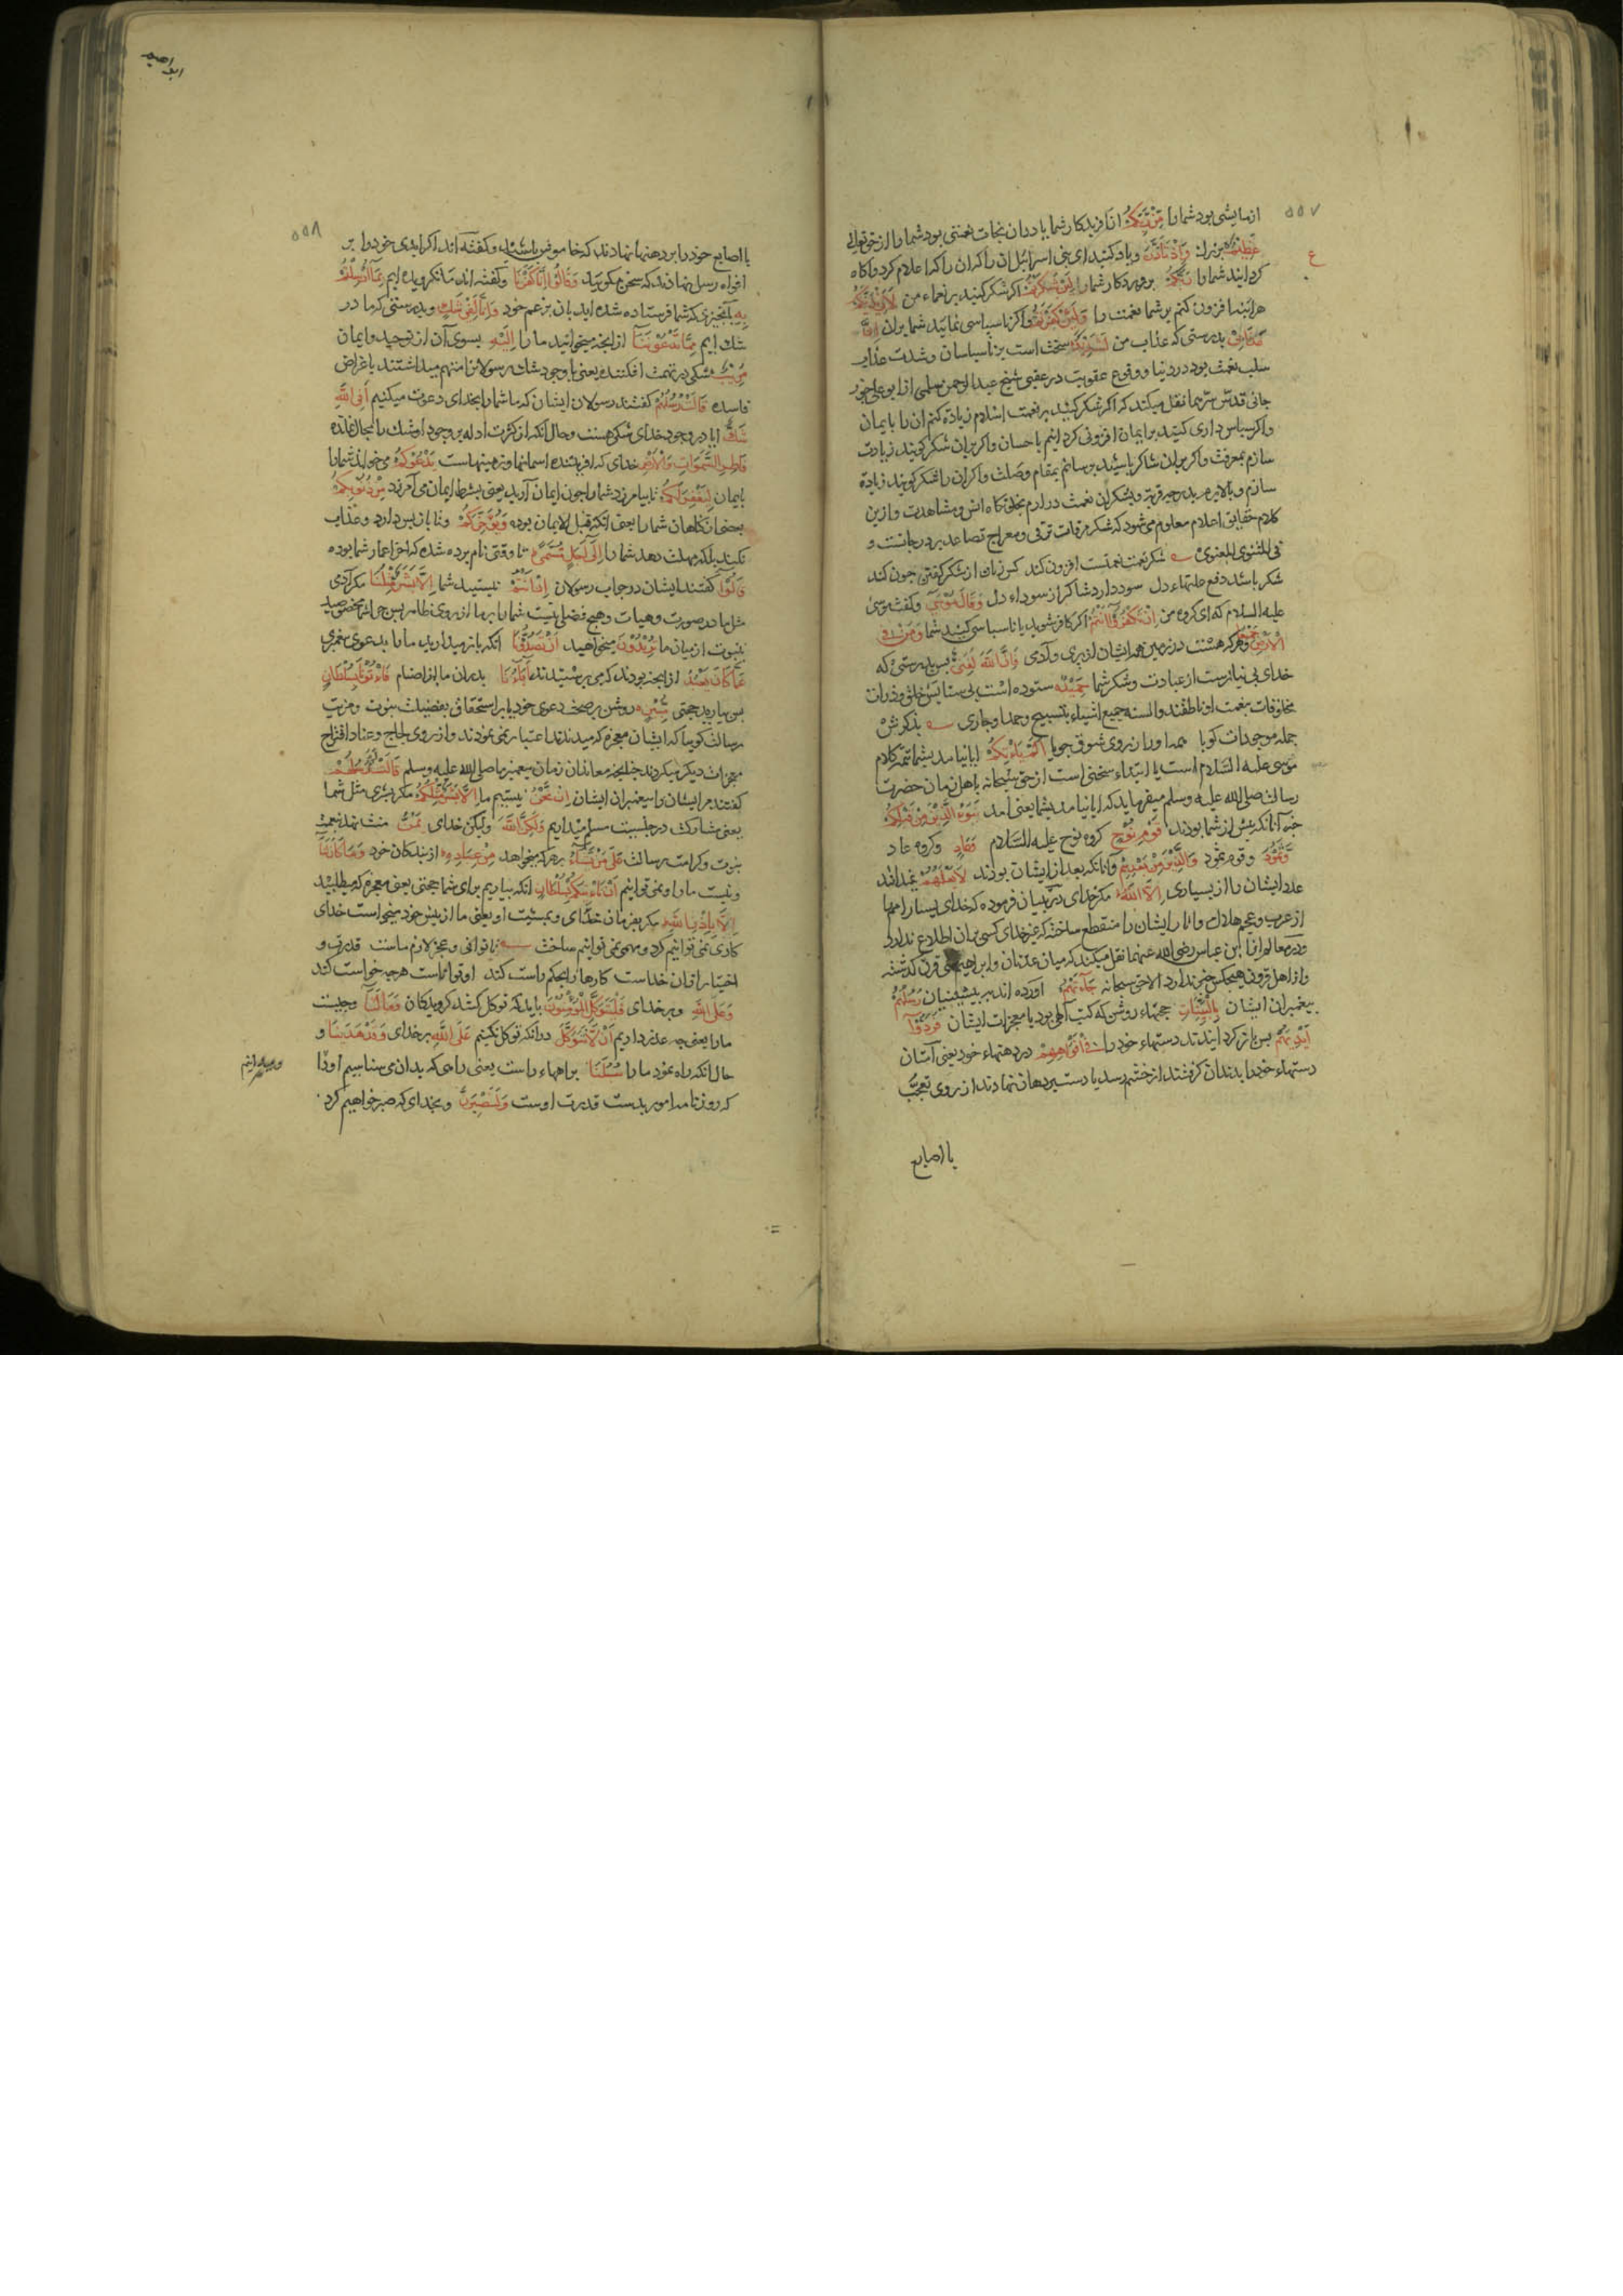 ۵۵۷
ازمایشی بود شمارا مِنْ رَبِّكُمْ از افریدکار شما یا دران نجات نعمتی بود شمارا از حق تعالی
عَظِيمٌ بزرك وَاِذْ تَاَذَّنَ و یاد کنید ای بنی اسرائیل ان را که اعلام کرد و اکاه
کردانید شمارا رَبُّكُمْ پروردکار شما لَئِنْ شَكَرْتُمْ اکر شکر کنید بر نعماء من لَاَزِيدَنَّكُمْ
هراینه افزون کنم بر شما نعمت را وَلَئِنْ كَفَرْتُمْ و اکر ناسپاسی نمایید شما بران اِنَّ
عَذَابِي بدرستی که عذاب من لَشَدِيدٌ سخت است بر ناسپاسان و شدت عذاب
سلب نعمت بود در دنیا و وقوع عقوبت در عقبی شیخ عبدالرحمن سلمی از ابو علی جوز
جانی قدس سرهما نقل میکند که اکر شکر کنید بر نعمت اسلام زیاده کنم ان را بایمان
و اکر سپاس داری کنید بر ایمان افزونی کردانیم باحسان و اکر بران شکر کویند زیادت
سازم بمعرفت و اکر بران شاکر باشید برسانم بمقام وصلت و اکر ان را شکر کویند زیاده
سازم و بالا برم بدرجه قربت و بشکران نعمت درارم بخلوتکاه انس و مشاهدت و ازین
کلام حقایق اعلام معلوم می شود که شکر مرقات ترقی و معراج تصاعد بر درجاتست و
فی المثنوی المعنوی شکر نعمت نعمتت افزون کند کس زیان از شکر کفتن جون کند
شکر باشد دفع علتهاء دل سود دارد شاکر از سوداء دل وَقَالَ مُوسَى و کفت موسی
علیه السلام که ای کروه من اِنْ تَكْفُرُوا اَنْتُمْ اکر کافر شوید یا ناسپاسی کنید شما وَمَنْ فِي
الْاَرْضِ جَمِيعًا و هرکه هست در زمین همه ایشان از پری و ادمی فَاِنَّ اللّٰهَ لَغَنِيٌّ پس بدرستی که
خدای بی نیازست از عبادت و شکر شما حَمِيدٌ ستوده است بی ستایش خلق و ذرات
مخلوقات بنعمت او ناطقند و السنه جمیع اشیاء بتسبیح و حمد او جاری بذکرش
جمله موجودات کویا همه او را ز روی شوق جویا اَلَمْ يَاْتِكُمْ ایا نیامد بشما تتمه کلام
موسی علیه السلام است یا ابتداء سخنی است از حق سبحانه باهل زمان حضرت
رسالت صلی الله علیه وسلم میفرماید که ایا نیامد بشما یعنی امد نَبَؤُا الَّذِينَ مِنْ قَبْلِكُمْ
خبر آنانکه پیش از شما بودند قَوْمِ نُوحٍ کروه نوح علیه السلام وَعَادٍ و کروه عاد
وَثَمُودَ و قوم ثمود وَالَّذِينَ مِنْ بَعْدِهِمْ و آنانکه بعد از ایشان بودند لَا يَعْلَمُهُمْ نمیداند
عدد ایشان را از بسیاری اِلَّا اللّٰهُ مکر خدای در تبیان فرموده که خدای بسیار امم را
از عرب و عجم هلاك و اثار ایشان را منقطع ساخته که غیر خدای کسی بران اطلاع ندارد
و در معالم از ابن عباس رضی الله عنهما نقل میکند که میان عدنان و ابراهیم سی قرن کذشته
و از اهل قرون هیچکس خبر ندارد الا حق سبحانه جَاءَتْهُمْ اورده اند بر پیشینیان رُسُلُهُمْ
پیغمبران ایشان بِالْبَيِّنَاتِ حجتهاء روشن که کتب الهی بود یا معجزات ایشان فَرَدُّوا
اَيْدِيَهُمْ پس باز کردانیدند دستهاء خود را فِي اَفْوَاهِهِمْ در دهنهاء خود یعنی آنان
دستهاء خود را بدندان کرفتند از خشم رسد یا دست بر دهان نهادند از روی تعجب
یا اصابع
۵۵۸
یا اصابع خود را بر دهنها نهادند که خاموش باشید و کفته اند اکر ایدی خود را بر
افواه رسل نهادند که سخن مکویید وَقَالُوا اِنَّا كَفَرْنَا و کفته اند ما نکرویده ایم بِمَا اُرْسِلْتُمْ
بِهِ بانجیزی که شما فرستاده شده اید بان بزعم خود وَاِنَّا لَفِي شَكٍّ و بدرستی که ما در
شك ایم مِمَّا تَدْعُونَنَا از انچه میخوانید ما را اِلَيْهِ بسوی آن از توحید و ایمان
مُرِيبٍ شکی در تهمت افکننده یعنی با وجود شك رسولانرا متهم میداشتند باغراض
فاسده قَالَتْ رُسُلُهُمْ کفتند رسولان ایشان که ما شما را بخدای دعوت میکنیم اَفِي اللّٰهِ
شَكٌّ ایا در وجود خدای شکی هست و حال انکه از کثرت ادله بر وجود او شك را مجال نمانده
فَاطِرِ السَّمٰوَاتِ وَالْاَرْضِ خدای که افریننده اسمانها و زمینهاست يَدْعُوكُمْ می خواند شمارا
بایمان لِيَغْفِرَ لَكُمْ تا بیامرزد شمارا جون ایمان آرید یعنی بشرط ایمان می آمرزد مِنْ ذُنُوبِكُمْ
بعضی از کناهان شما را یعنی انکه قبل الایمان بوده وَيُؤَخِّرَكُمْ و تا باز پس دارد و عذاب
نکند بلکه مهلت دهد شما را اِلَى اَجَلٍ مُسَمًّى تا وقتی نام برده شده که اخر اعمار شما بوده
قَالُوا کفتند ایشان در جواب رسولان اِنْ اَنْتُمْ نیستید شما اِلَّا بَشَرٌ مِثْلُنَا مکر آدمی
مثل ما در صورت و هیات و هیچ فضلی نیست شمارا بر ما از روی ظاهر پس جرا شما مخصوصید
بنبوت از میان ما تُرِيدُونَ میخواهید اَنْ تَصُدُّونَا انکه باز میدارید ما را بدعوی پیغمبری
عَمَّا كَانَ يَعْبُدُ از انچه بودند که می پرستیدند اٰبَاؤُنَا پدران ما از اصنام فَاْتُونَا بِسُلْطَانٍ
پس بیارید حجتی مُبِينٍ روشن بر صحت دعوی خود یا بر استحقاق بفضیلت نبوت و مزیت
رسالت کویا که ایشان معجزه که میدیدند اعتبار نمی نمودند و از روی لجاج و عناد اقتراح
معجزات دیکر میکردند جنانچه معاندان زمان پیغمبر ما صلی الله علیه وسلم قَالَتْ لَهُمْ رُسُلُهُمْ
کفتند مر ایشان را پیغمبران ایشان اِنْ نَحْنُ نیستیم ما اِلَّا بَشَرٌ مِثْلُكُمْ مکر بشری مثل شما
یعنی مشارکت در جنسیت مسلم میداریم وَلٰكِنَّ اللّٰهَ ولیکن خدای يَمُنُّ منت نهد بنعمت
نبوت و کرامت رسالت عَلَى مَنْ يَشَاءُ بر هر که میخواهد مِنْ عِبَادِهِ از بندکان خود وَمَا كَانَ لَنَا
و نیست ما را و نمی توانیم اَنْ نَاْتِيَكُمْ بِسُلْطَانٍ انکه بیاریم برای شما حجتی یعنی معجزه که میطلبید
اِلَّا بِاِذْنِ اللّٰهِ مکر بفرمان خدای و بمشیت او یعنی ما از پیش خود بی خواست خدای
کاری نمی توانیم کرد و مهمی نمی توانیم ساخت ناتوانی و عجز لازم ماست قدرت و
اختیار ازان خداست کارها را بحکم راست کند او تواناست هرچه خواست کند
وَعَلَى اللّٰهِ و بر خدای فَلْيَتَوَكَّلِ الْمُؤْمِنُونَ باید که توکل کنند کرویدکان وَمَا لَنَا و چیست
ما را یعنی چه عذر داریم اَنْ لَا نَتَوَكَّلَ در انکه توکل نکنیم عَلَى اللّٰهِ بر خدای وَقَدْ هَدٰينَا و
حال انکه راه نمود ما را سُبُلَنَا براههاء راست یعنی راهی که بدان می شناسیم او را
که روزنامه امور بدست قدرت اوست وَلَنَصْبِرَنَّ و بخدای که صبر خواهیم کرد